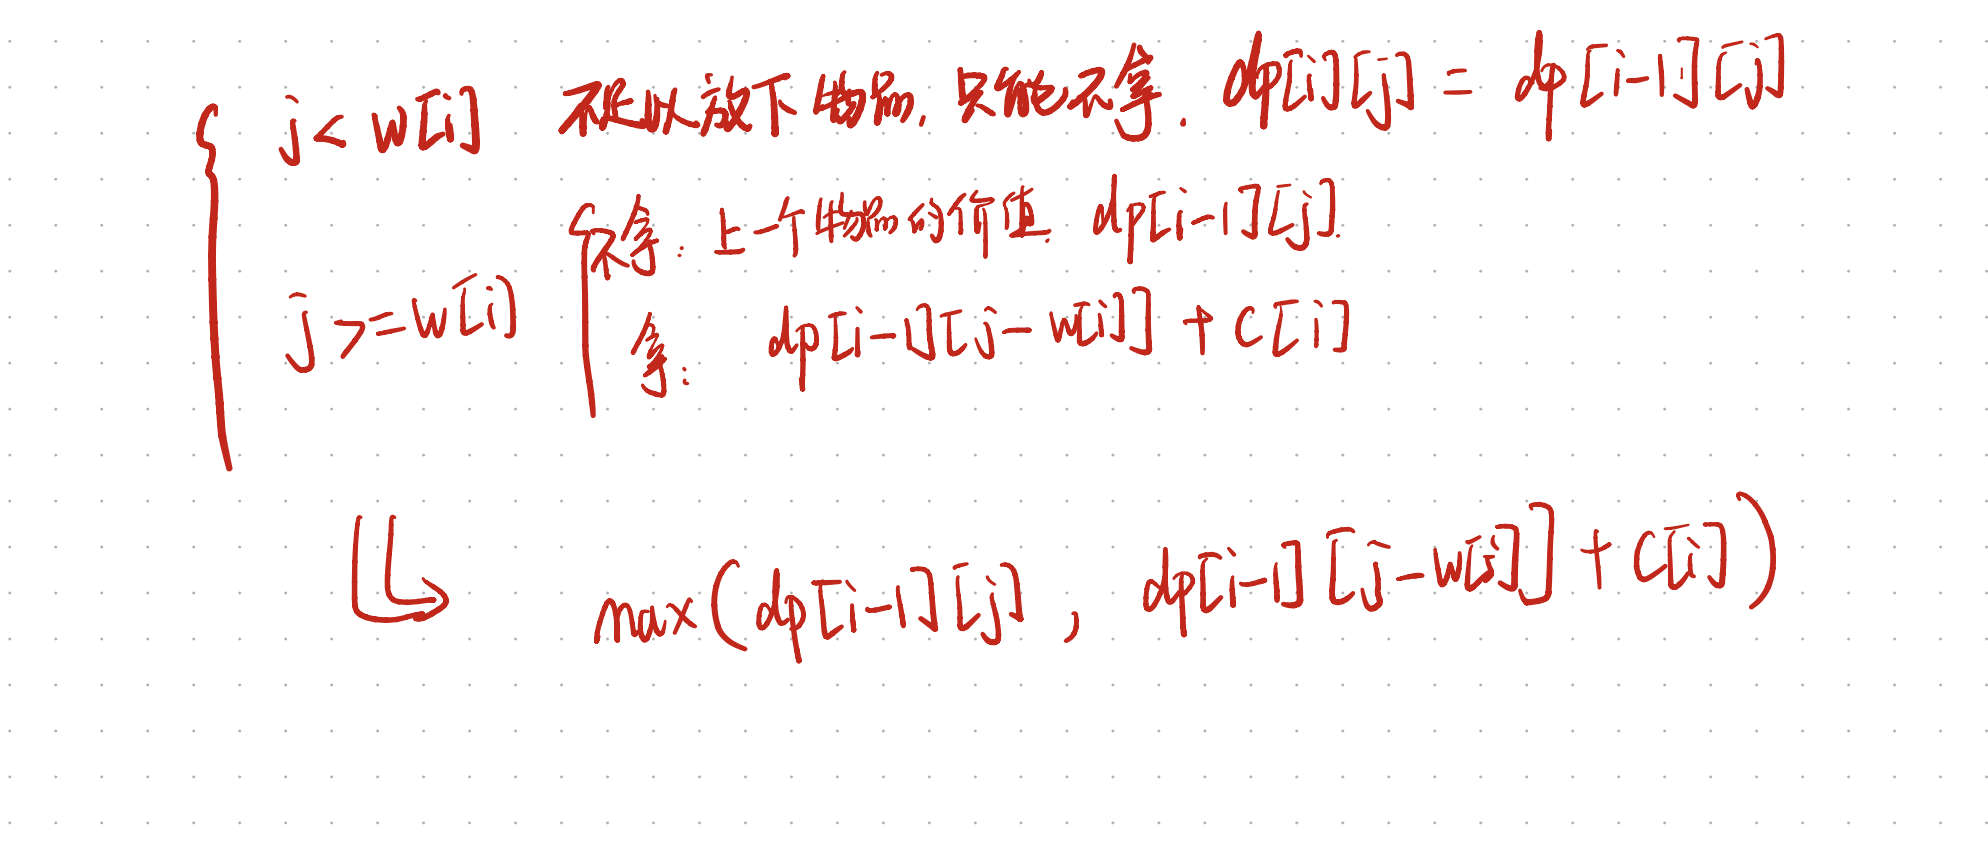 j < w[i] 不足以放下物品, 只能不拿. dp[i][j] = dp[i-1][j]
不拿: 上一个物品的价值. dp[i-1][j]
j >= w[i]
拿: dp[i-1][j-w[i]] + c[i]
max(dp[i-1][j], dp[i-1][j-w[i]] + c[i])